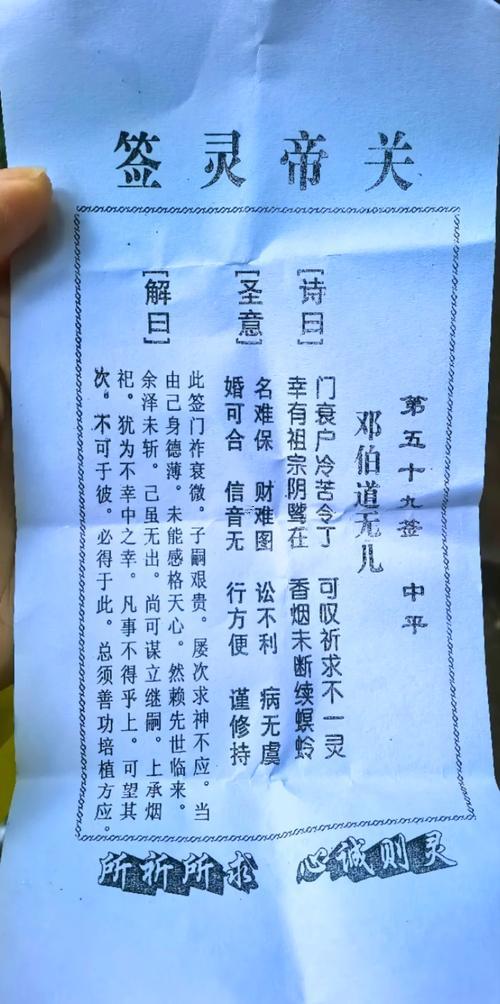 关帝灵签
第五十九签 中平
邓伯道无儿
[诗曰]
门衰户冷苦令丁 可叹祈求不一灵
幸有祖宗阴骘在 香烟未断续螟蛉
[圣意]
名难保 财难图 讼不利 病无虞
婚可合 信音无 行方便 谨修持
[解曰]
此签门祚衰微。子嗣艰贵。屡次求神不应。当
由己身德薄。未能感格天心。然赖先世临来。
余泽未斩。己虽无出。尚可谋立继嗣。上承烟
祀。犹为不幸中之幸。凡事不得乎上。可望其
次。不可于彼。必得于此。总须善功培植方应。
心诚则灵
所祈所求